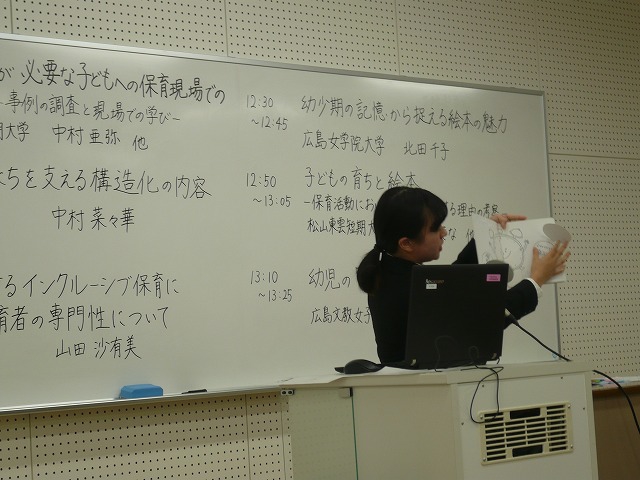 が 必要な子どもへの保育現場での
-事例の調査と現場での学び-
大学 中村 亜弥 他
ちを支える構造化の内容
中村 菜々華
るインクルーシブ保育に
育者の専門性について
山田 沙有美
12:30
～12:45
幼少期の記憶から捉える絵本の魅力
広島女学院大学 北田 千子
12:50
～13:05
子どもの育ちと絵本
-保育活動にお
る理由の考察
松山東雲短期大
な 他
13:10
～13:25
幼児の
広島文教女子